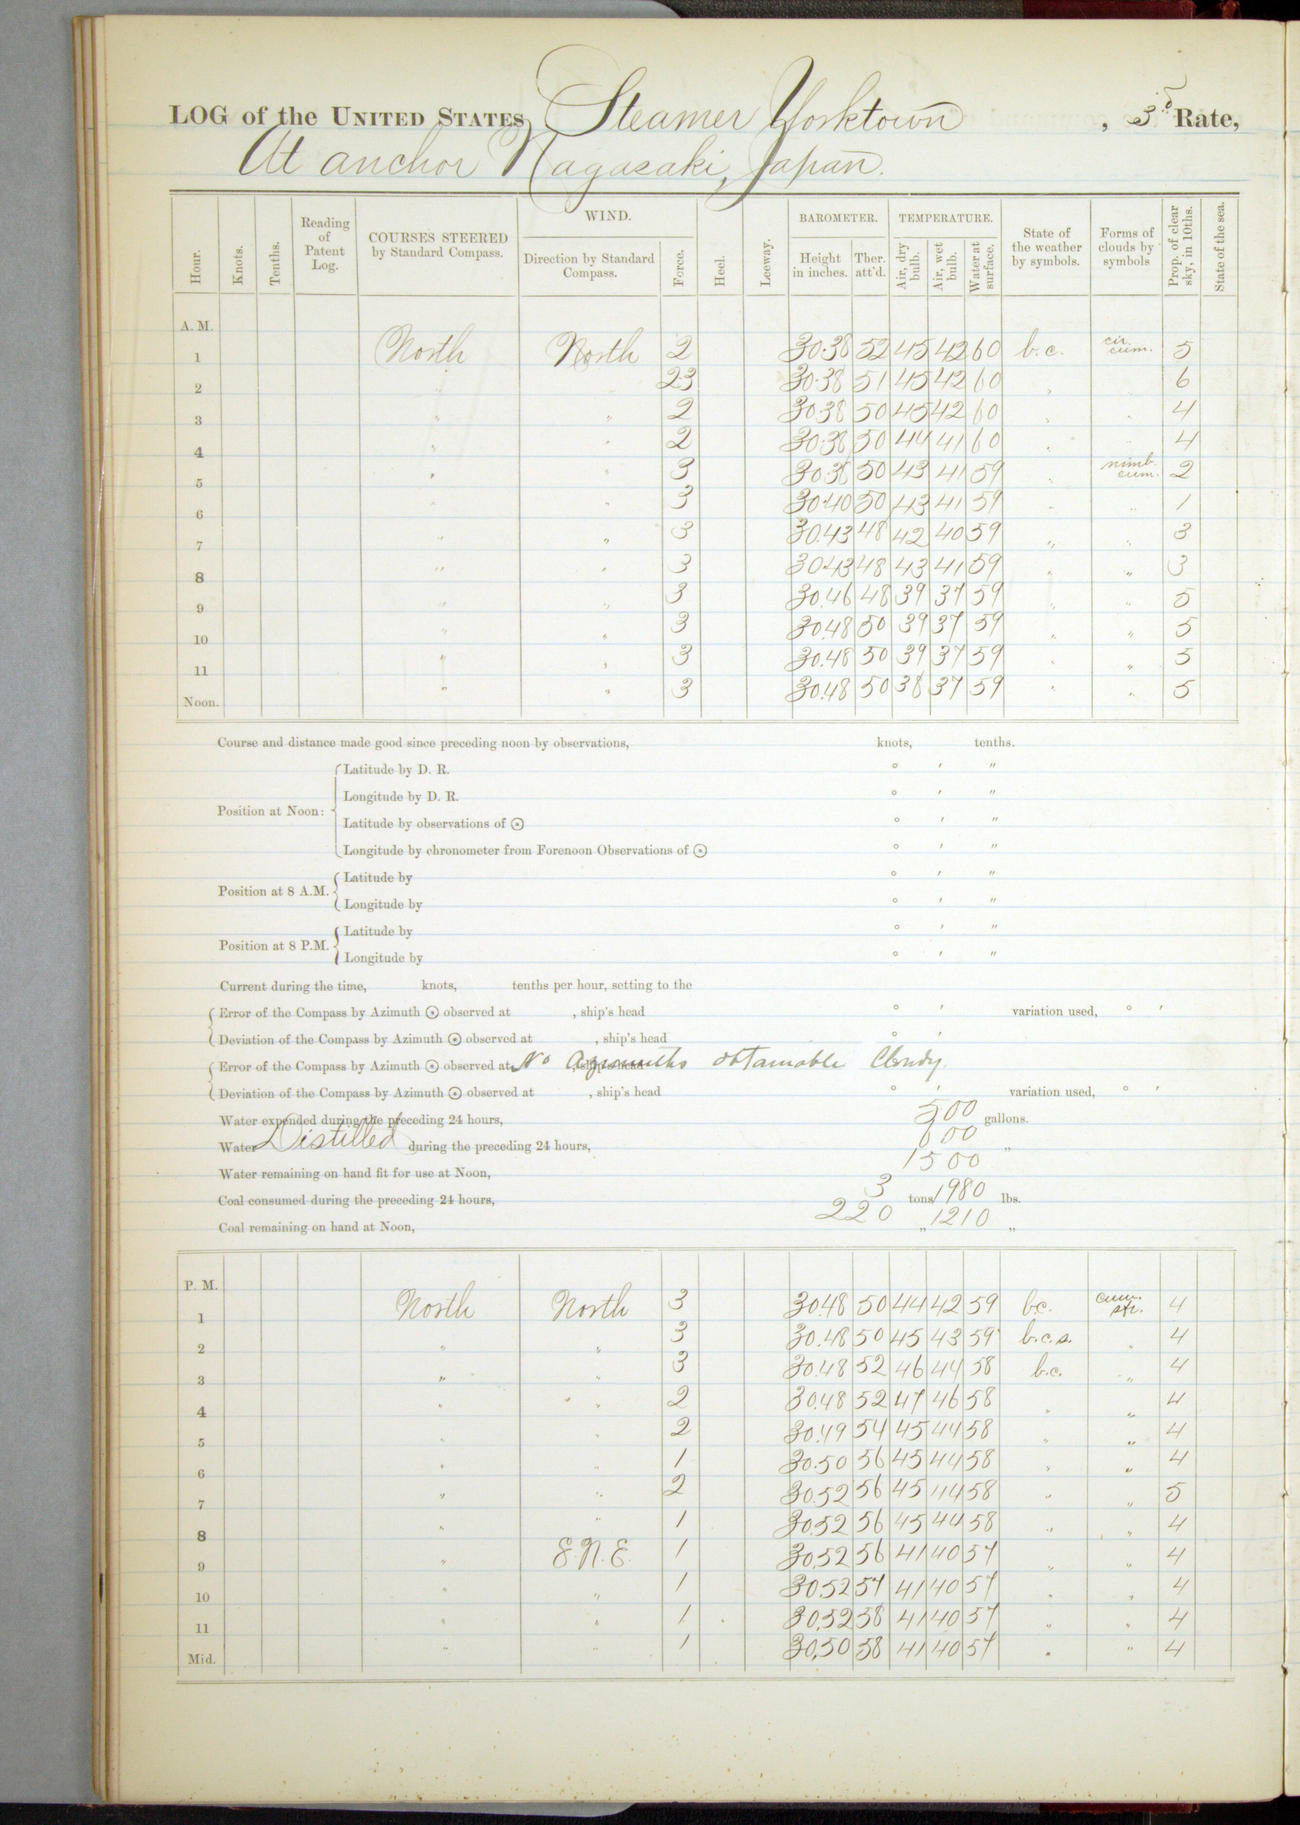 LOG of the UNITED STATES Steamer Yorktown, 3d Rate,
At anchor Nagasaki, Japan.
Hour. Knots. Tenths. Reading of Patent Log. COURSES STEERED by Standard Compass. WIND. Direction by Standard Compass. Force. Heel. Leeway. BAROMETER. Height in inches. Ther. att'd. TEMPERATURE. Air, dry bulb. Air, wet bulb. Water at surface. State of the weather by symbols. Forms of clouds by symbols Prop. of clear sky, in 10ths. State of the sea.
A. M.
1 North North 2 30.38 52 45 42 60 b.c. cir. cum. 5
2 23 30.38 51 45 42 60 " 6
3 " " 2 30.38 50 45 42 60 " " 4
4 " " 2 30.38 50 44 41 60 " " 4
5 " " 3 30.38 50 43 41 59 " nimb. cum. 2
6 " " 3 30.40 50 43 41 59 " " 1
7 " " 3 30.43 48 42 40 59 " " 3
8 " " 3 30.43 48 43 41 59 " " 3
9 " " 3 30.46 48 39 37 59 " " 5
10 " " 3 30.48 50 39 37 59 " " 5
11 " " 3 30.48 50 39 37 59 " " 5
Noon. " " 3 30.48 50 38 37 59 " " 5
Course and distance made good since preceding noon by observations, knots, tenths.
Position at Noon: Latitude by D. R. ° ′ ″
Longitude by D. R. ° ′ ″
Latitude by observations of ☉ ° ′ ″
Longitude by chronometer from Forenoon Observations of ☉ ° ′ ″
Position at 8 A.M. Latitude by ° ′ ″
Longitude by ° ′ ″
Position at 8 P.M. Latitude by ° ′ ″
Longitude by ° ′ ″
Current during the time, knots, tenths per hour, setting to the
Error of the Compass by Azimuth ☉ observed at , ship's head ° ′ variation used, ° ′
Deviation of the Compass by Azimuth ☉ observed at , ship's head ° ′
Error of the Compass by Azimuth ☉ observed at No Azimuths obtainable Cloudy
Deviation of the Compass by Azimuth ☉ observed at , ship's head ° ′ variation used, ° ′
Water expended during the preceding 24 hours, 500 gallons.
Water Distilled during the preceding 24 hours, 600 "
Water remaining on hand fit for use at Noon, 1500
Coal consumed during the preceding 24 hours, 3 tons 1980 lbs.
Coal remaining on hand at Noon, 220 " 1210 "
P. M.
1 North North 3 30.48 50 44 42 59 b.c. cum. str. 4
2 " " 3 30.48 50 45 43 59 b.c.s. " 4
3 " " 3 30.48 52 46 44 58 b.c. " 4
4 " " 2 30.48 52 47 46 58 " " 4
5 " " 2 30.49 54 45 44 58 " " 4
6 " " 1 30.50 56 45 44 58 " " 4
7 " " 2 30.52 56 45 44 58 " " 5
8 " " 1 30.52 56 45 44 58 " " 4
9 " E.N.E. 1 30.52 56 41 40 57 " " 4
10 " " 1 30.52 57 41 40 57 " " 4
11 " " 1 30.52 58 41 40 57 " " 4
Mid. " " 1 30.50 58 41 40 57 " " 4